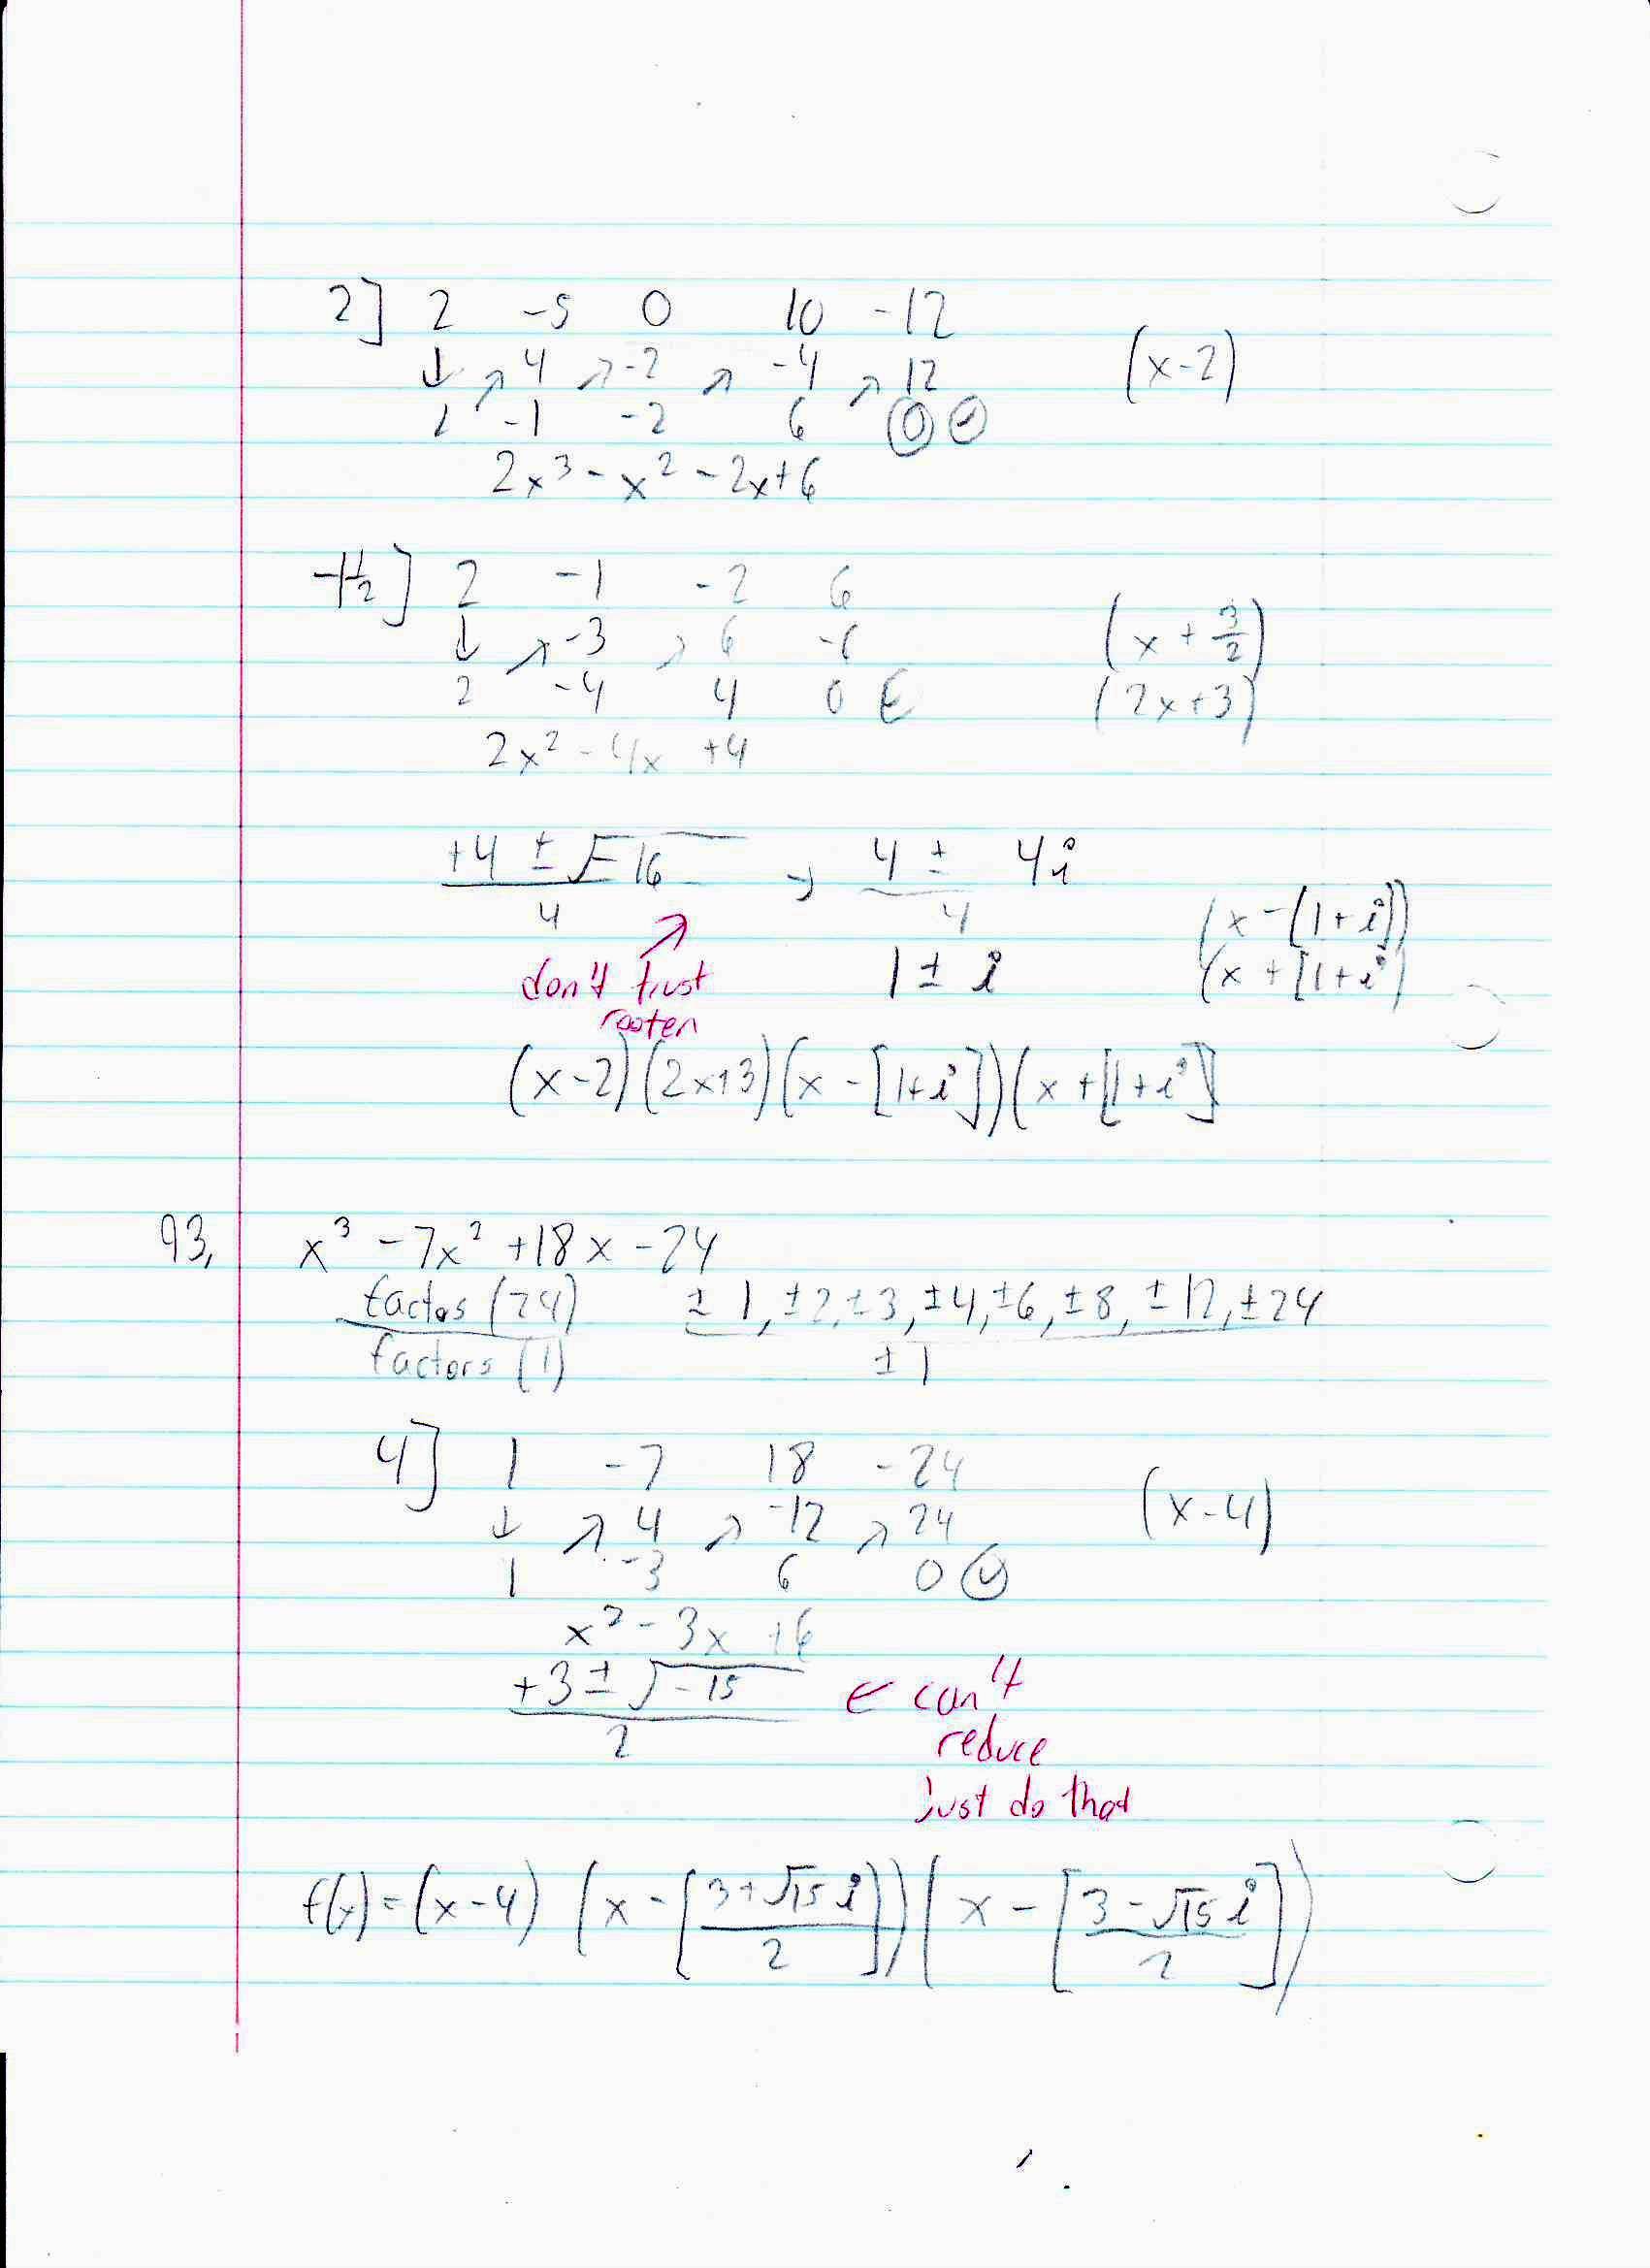 2] 2 -5 0 10 -12
↓ ↗ 4 ↗ -2 ↗ -4 ↗ 12 (x-2)
2 -1 -2 6 0
2x³ - x² - 2x + 6
-1½] 2 -1 -2 6
↓ ↗ -3 ↗ 6 -6 (x + 3/2)
2 -4 4 0 (2x+3)
2x² - 4x + 4
+4 ± √-16 / 4 → 4 ± 4i / 4
(x - [1+i])
don't trust 1 ± i (x + [1+i]
rooten
(x-2)(2x+3)(x - [1+i])(x + [1+i]
93. x³ - 7x² + 18x - 24
factos (24) / factors (1) ±1, ±2, ±3, ±4, ±6, ±8, ±12, ±24 / ±1
4] 1 -7 18 -24
↓ ↗ 4 ↗ -12 ↗ 24 (x-4)
1 -3 6 0
x² - 3x + 6
+3 ± √-15 / 2 ← can't
reduce
just do that
f(x) = (x-4) (x - [3+√15 i / 2]) (x - [3-√15 i / 2])